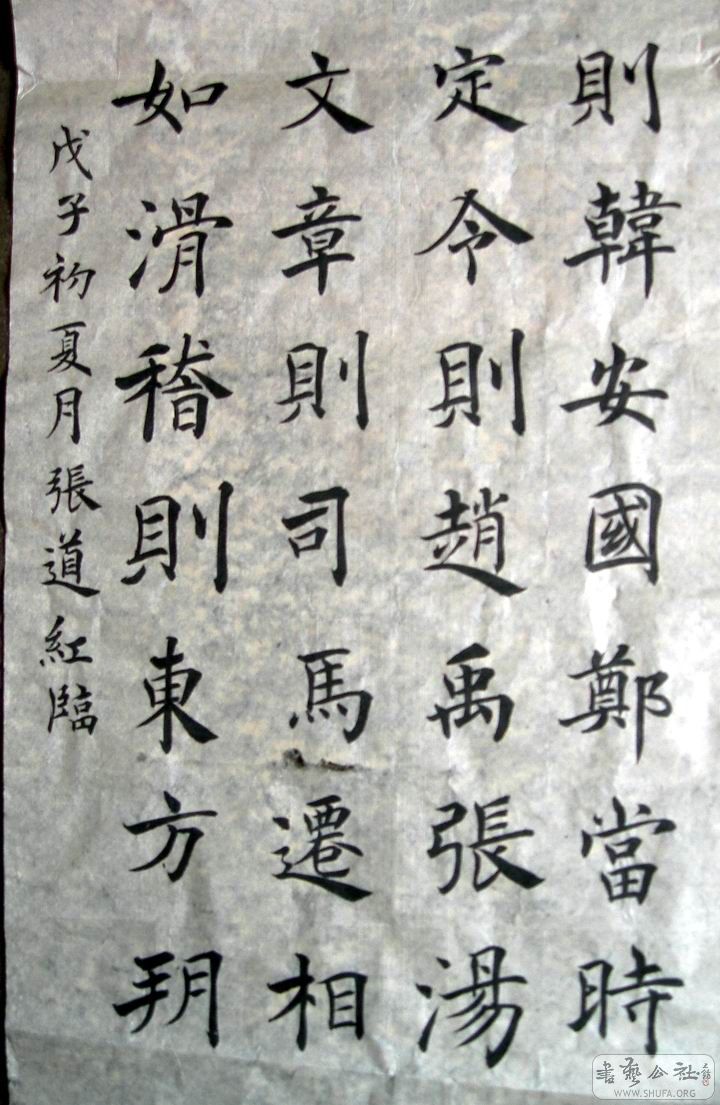 則韓安國鄭當時
定令則趙禹張湯
文章則司馬遷相
如滑稽則東方朔
戊子初夏月張道紅臨
書藝公社
WWW.SHUFA.ORG